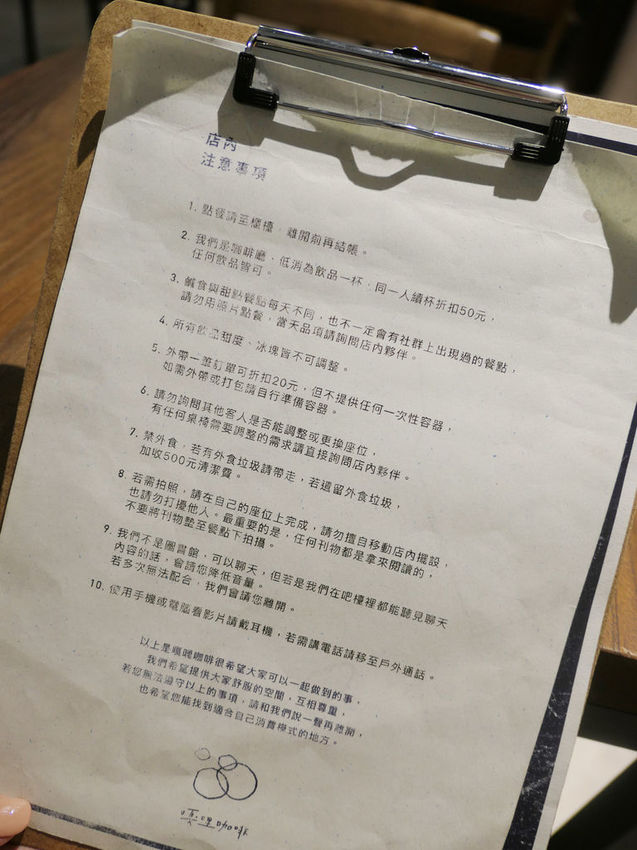 店內
注意事項
1. 點餐請至櫃檯，離開前再結帳。
2. 我們是咖啡廳、低消為飲品一杯，同一人續杯折扣50元，
任何飲品皆可。
3. 鹹食與甜點餐點每天不同，也不一定會有社群上出現過的餐點，
請勿用照片點餐，當天品項請詢問店內夥伴。
4. 所有飲品甜度、冰塊皆不可調整。
5. 外帶一筆訂單可折扣20元，但不提供任何一次性容器，
如需外帶或打包請自行準備容器。
6. 請勿詢問其他客人是否能調整或更換座位，
有任何桌椅需要調整的需求請直接詢問店內夥伴。
7. 禁外食，若有外食垃圾請帶走，若遺留外食垃圾，
加收500元清潔費。
8. 若需拍照，請在自己的座位上完成，請勿擅自移動店內擺設，
也請勿打擾他人。最重要的是，任何刊物都是拿來閱讀的，
不要將刊物墊至餐點下拍攝。
9. 我們不是圖書館，可以聊天，但若是我們在吧檯裡都能聽見聊天
內容的話，會請您降低音量。
若多次無法配合，我們會請您離開。
10. 使用手機或電腦看影片請戴耳機，若需講電話請移至戶外通話。
以上是嘎嘎咖啡很希望大家可以一起做到的事，
我們希望提供大家舒服的空間，互相尊重，
若您無法遵守以上的事項，請和我們說一聲再離開，
也希望您能找到適合自己消費模式的地方。